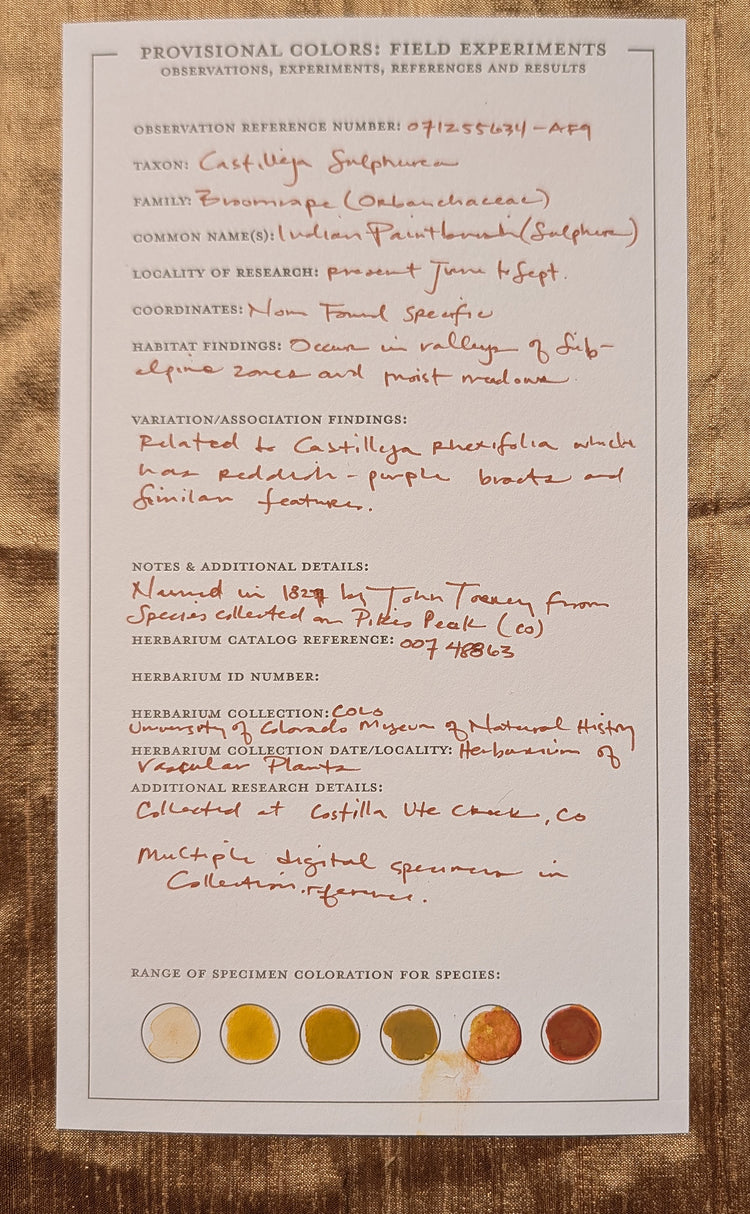 PROVISIONAL COLORS: FIELD EXPERIMENTS
OBSERVATIONS, EXPERIMENTS, REFERENCES AND RESULTS
OBSERVATION REFERENCE NUMBER: 071255634-AF9
TAXON: Castilleja Sulphurea
FAMILY: Broomrape (Orbanchaceae)
COMMON NAME(S): Indian Paintbrush (Sulphur)
LOCALITY OF RESEARCH: present June to Sept.
COORDINATES: Non Found Specific
HABITAT FINDINGS: Occur in valleys of Sub-
alpine zones and moist meadows.
VARIATION/ASSOCIATION FINDINGS:
Related to Castilleja rhexifolia which
has reddish-purple bracts and
similar features.
NOTES & ADDITIONAL DETAILS:
Named in 1827 by John Torrey from
Species collected on Pikes Peak (CO)
HERBARIUM CATALOG REFERENCE: 00748863
HERBARIUM ID NUMBER:
HERBARIUM COLLECTION: COLO
University of Colorado Museum of Natural History
HERBARIUM COLLECTION DATE/LOCALITY: Herbarium of
Vascular Plants
ADDITIONAL RESEARCH DETAILS:
Collected at Costilla Ute Creek, CO
Multiple digital specimens in
Collection reference.
RANGE OF SPECIMEN COLORATION FOR SPECIES: